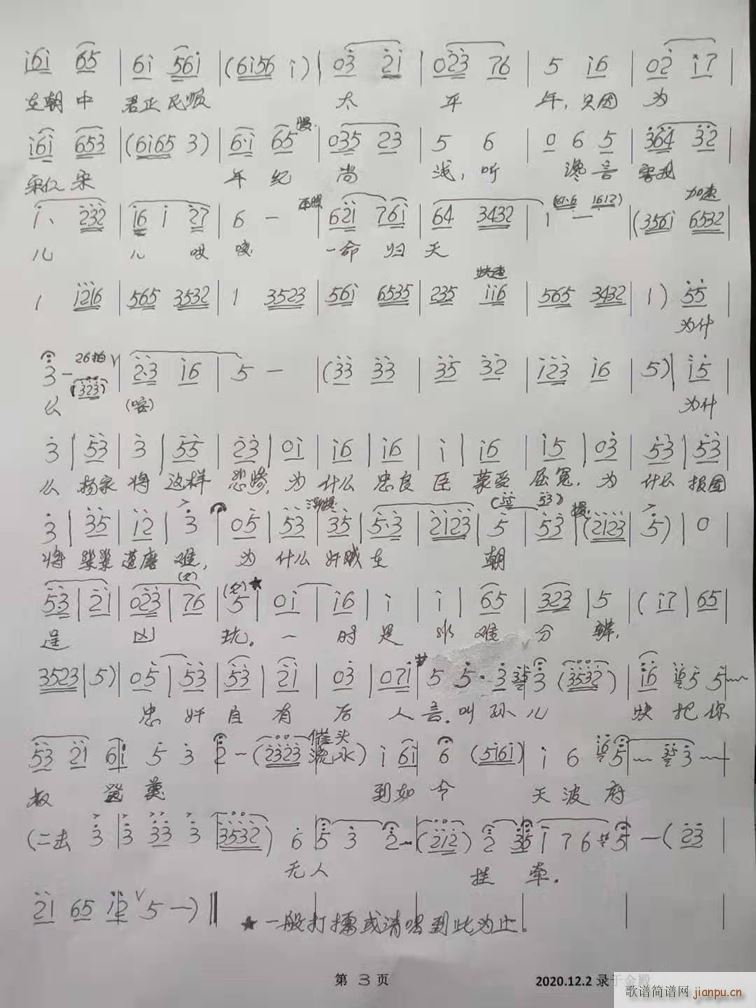 i6i 65 | 6i 56i | (6i56 i) | 03 2i | 023 76 | 5 i6 | 02 i7
在朝中 君正民顺 太平年,只因为
i6i 653 | (6i65 3) | 6·i 65 慢 | 035 23 | 5 6 | 0 6 5 | 364 32
宋仁宗 年纪尚浅,听谗言害我
i、 232 | i6 i 27 | 6 — | 62i 76i | 64 3432 | i — | (356i 6532 加速
儿 儿 哎 咳 一命归天
1 i2i6 | 565 3532 | 1 3523 | 56i 6535 | 235 ii6 快速 | 565 3432 | 1) 55
为什
3 — 26拍 (323) | 2·3 i6 | 5 — | (33 33 | 35 32 | i23 i6 | 5) | i5
么 为什
3 | 53 | 3 | 55 | 23 | 0i | i6 | i6 | i | i6 | i5 | 03 | 53 | 53
么 杨家将这样悲惨,为什么忠良臣蒙受屈冤,为什么报国
3 | 35 | i2 | 3 | 05 | 53 | 35 | 5·3 | 2i23 | 5 | 53 | (2i23 | 5) | 0
将桨桨遭磨难,为什么奸贼在朝
53 | 2i | 023 | 76 | 5 ★ | 0i | i6 | i | i | 65 | 323 | 5 | (i7 | 65
逞凶玩。一时是非难分辨,
3523 | 5) | 05 | 53 | 53 | 2i | 03 | 07i | 5 5·3 3 (3532) | i6 5 5
忠奸自有后人言。叫孙儿 快把你
53 2i 6i 5 3 2 — (2323 流水) i 6i 6 (5i6i) i 6 5 3
叔 到如今 天波府
(二击 3 | 3 33 3 | 3532) 6 5 3 2 — (2i2) 2 35 i 7 6 5 — (23
无人 挂牵。
2i 65 i2 5 —)
★一般打擂或清唱到此为止。
第 3 页
2020.12.2 录于金殿
歌谱简谱网
jianpu.cn